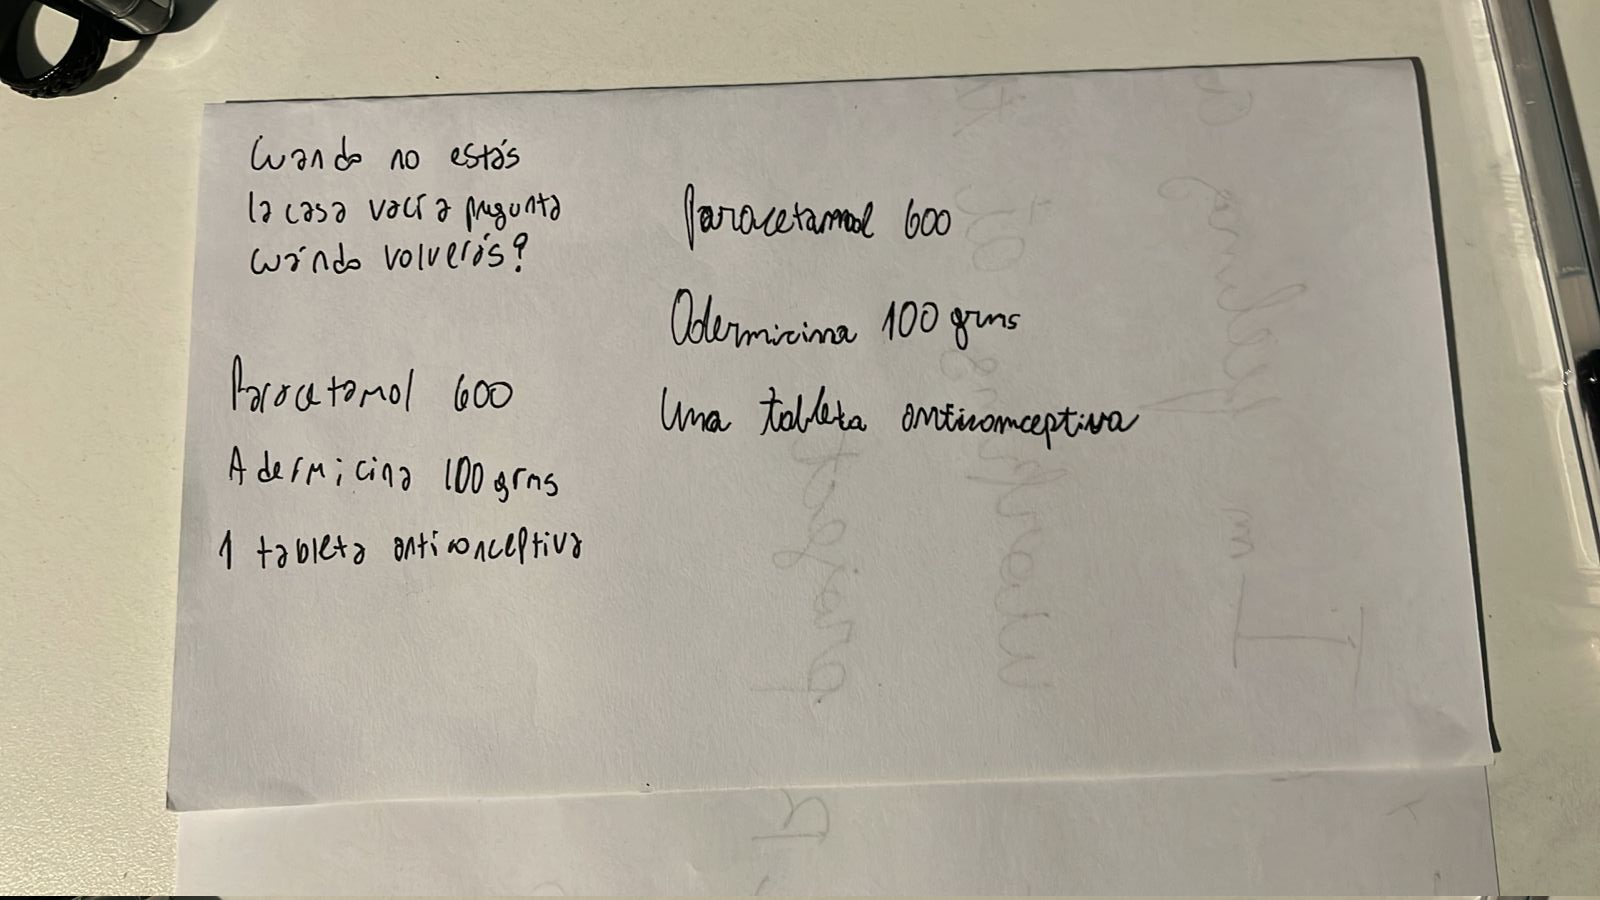 Cuando no estás
la casa vacía pregunta
cuándo volverás?
Paracetamol 600
Adermicina 100 grms
1 tableta anticonceptiva
Paracetamol 600
Adermicina 100 grms
Una tableta anticonceptiva